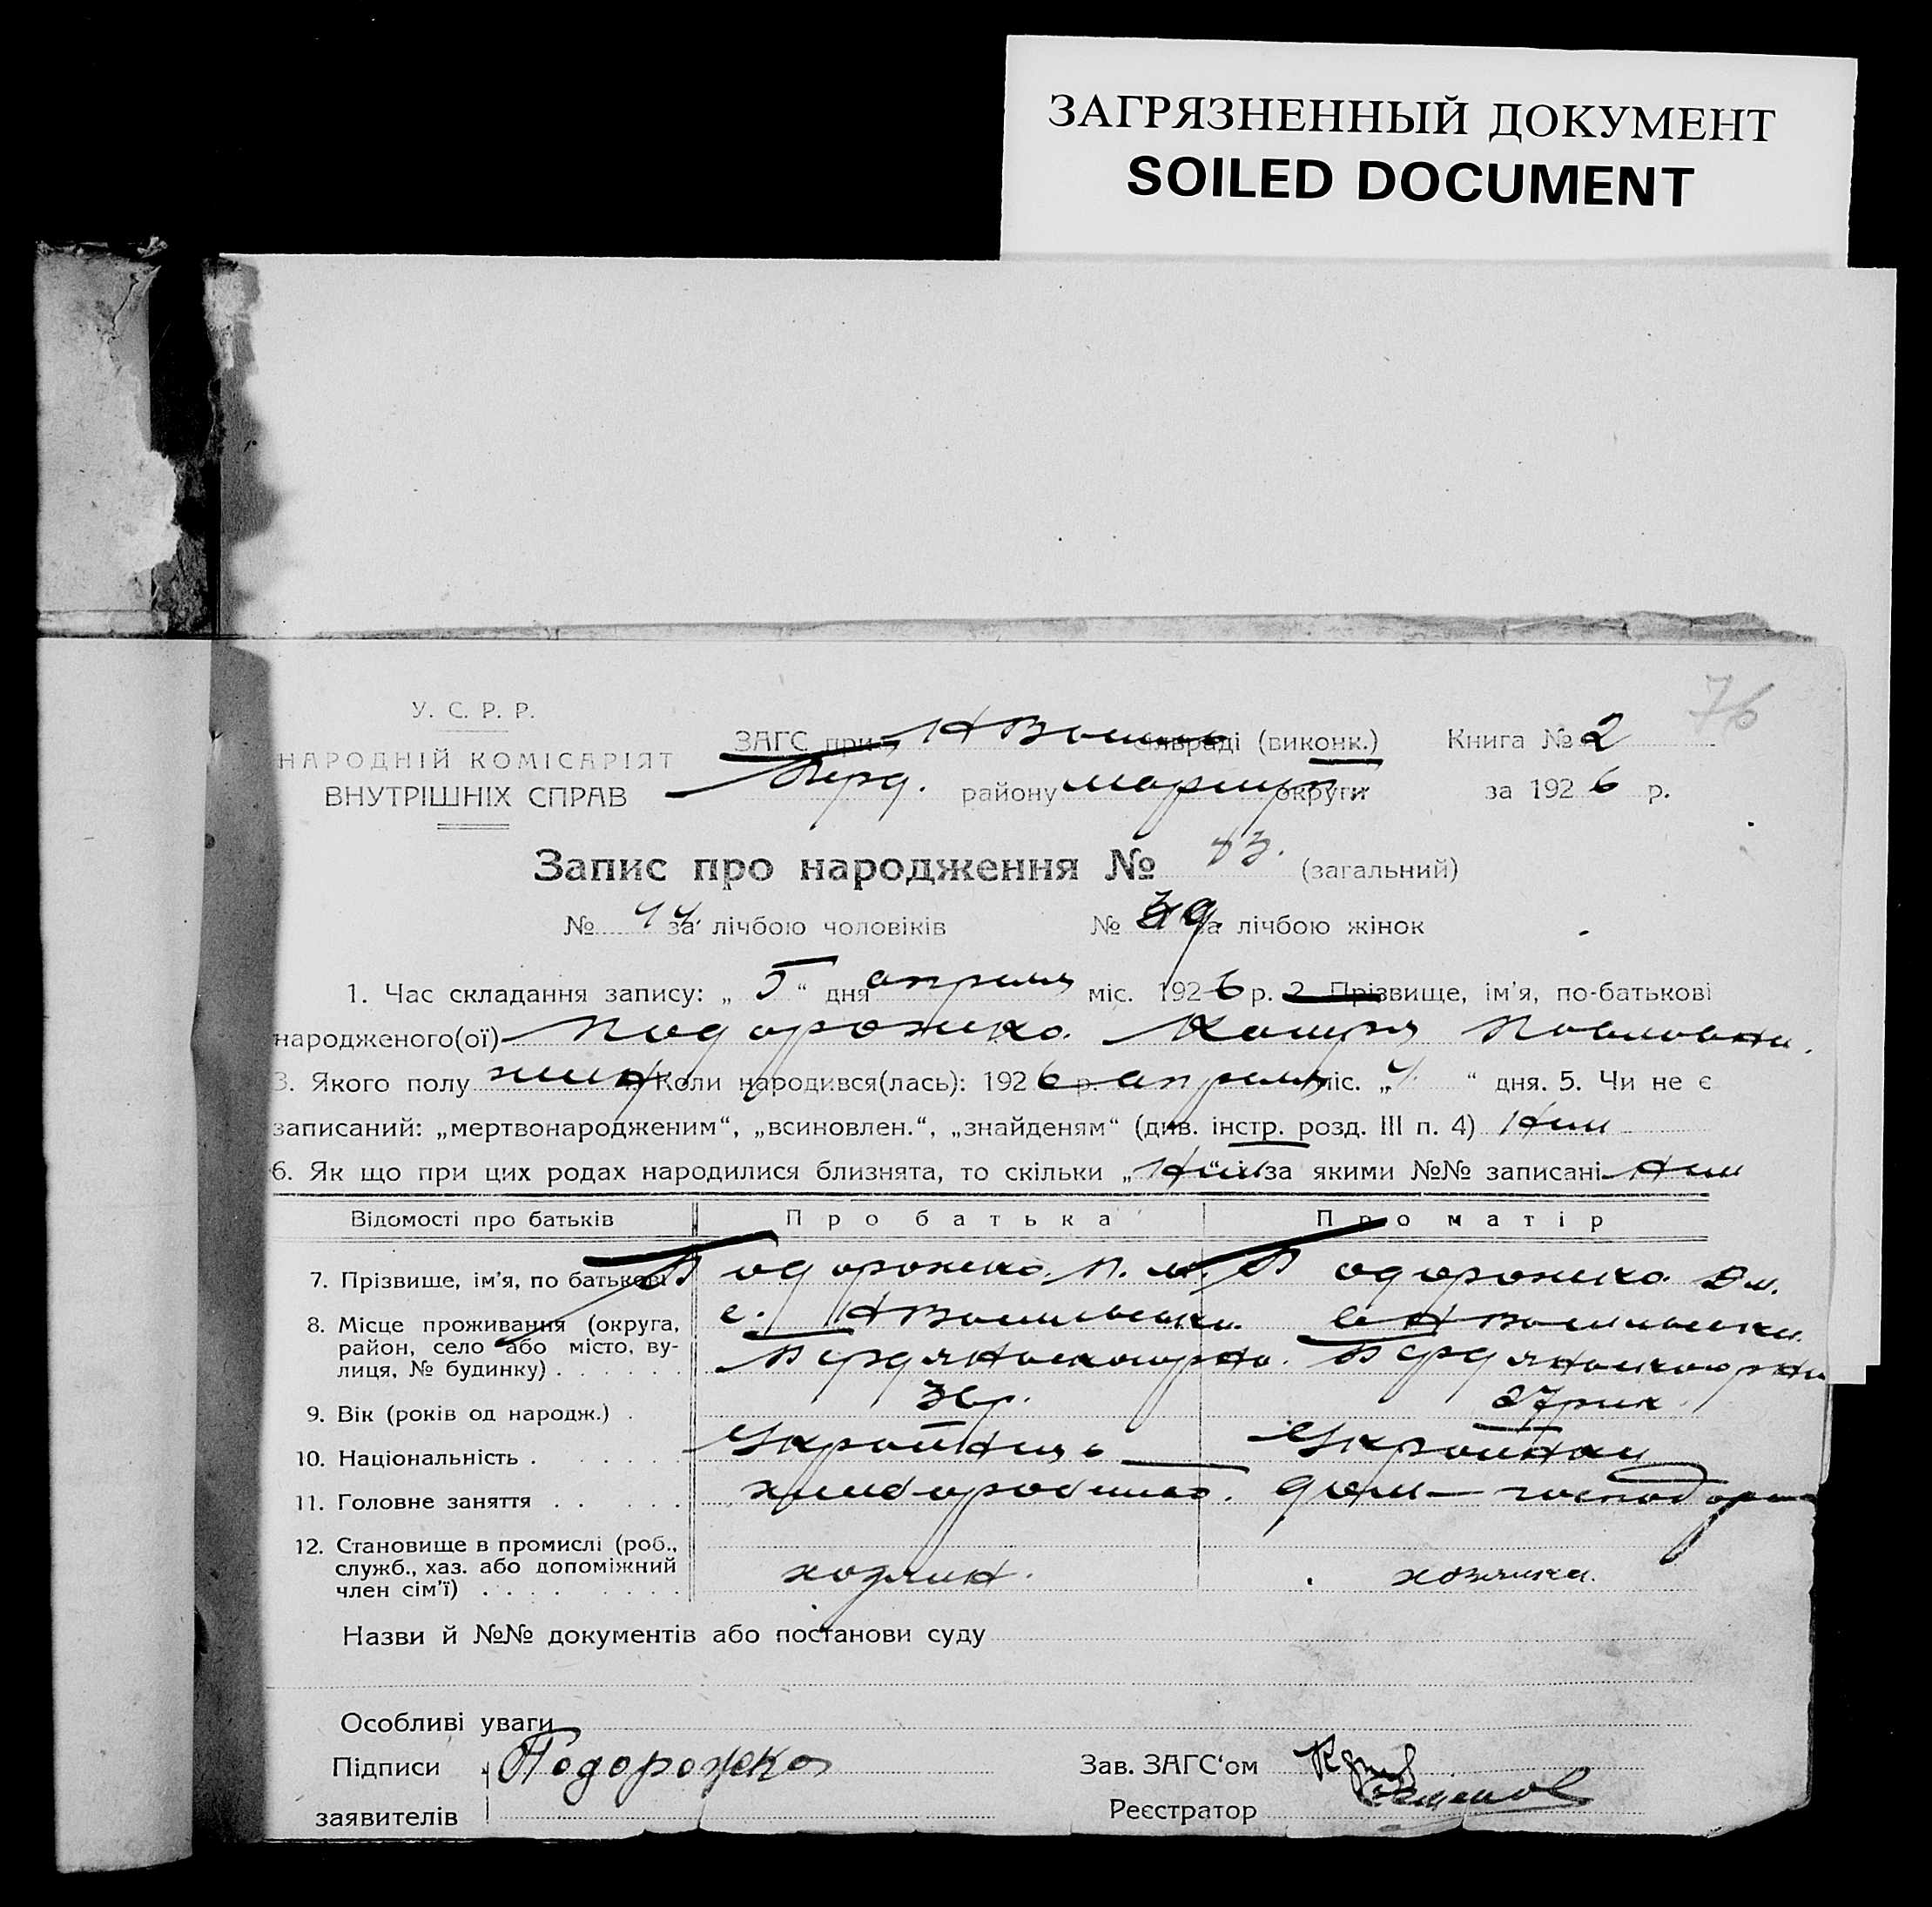 ЗАГРЯЗНЕННЫЙ ДОКУМЕНТ
SOILED DOCUMENT
76
У. С. Р. Р.
НАРОДНІЙ КОМІСАРІЯТ
ВНУТРІШНІХ СПРАВ
ЗАГС при сільраді (виконк.) Книга № 2
Берд. району округи за 1926 р.
Запис про народження № 83. (загальний)
№ 44 за лічбою чоловіків № 39 за лічбою жінок
1. Час складання запису: „ 5 “ дня апреля міс. 1926 р. 2. Прізвище, ім'я, по-батькові
народженого(ої) Подорожко Павловна.
3. Якого полу жин Коли народився(лась): 1926 р. апреля міс. „ “ дня. 5. Чи не є
записаний: „мертвонародженим“, „всиновлен.“, „знайденям“ (див. інстр. розд. III п. 4) Нит
6. Як що при цих родах народилися близнята, то скільки „ “ і за якими №№ записані
Відомості про батьків Про батька Про матір
7. Прізвище, ім'я, по батькові Подорожко. П. М. Подорожко
8. Місце проживання (округа, с. Н Васильевка. с. Н Васильевка
район, село або місто, ву-
лиця, № будинку)
9. Вік (років од народж.) 27 рик
10. Національність Украинець Украинка
11. Головне заняття хлиборобство. дом— господар
12. Становище в промислі (роб.,
служб., хаз. або допоміжний хозяин. хозяика.
член сім'ї)
Назви й №№ документів або постанови суду
Особливі уваги
Підписи Подорожко Зав. ЗАГС'ом
заявителів Реєстратор